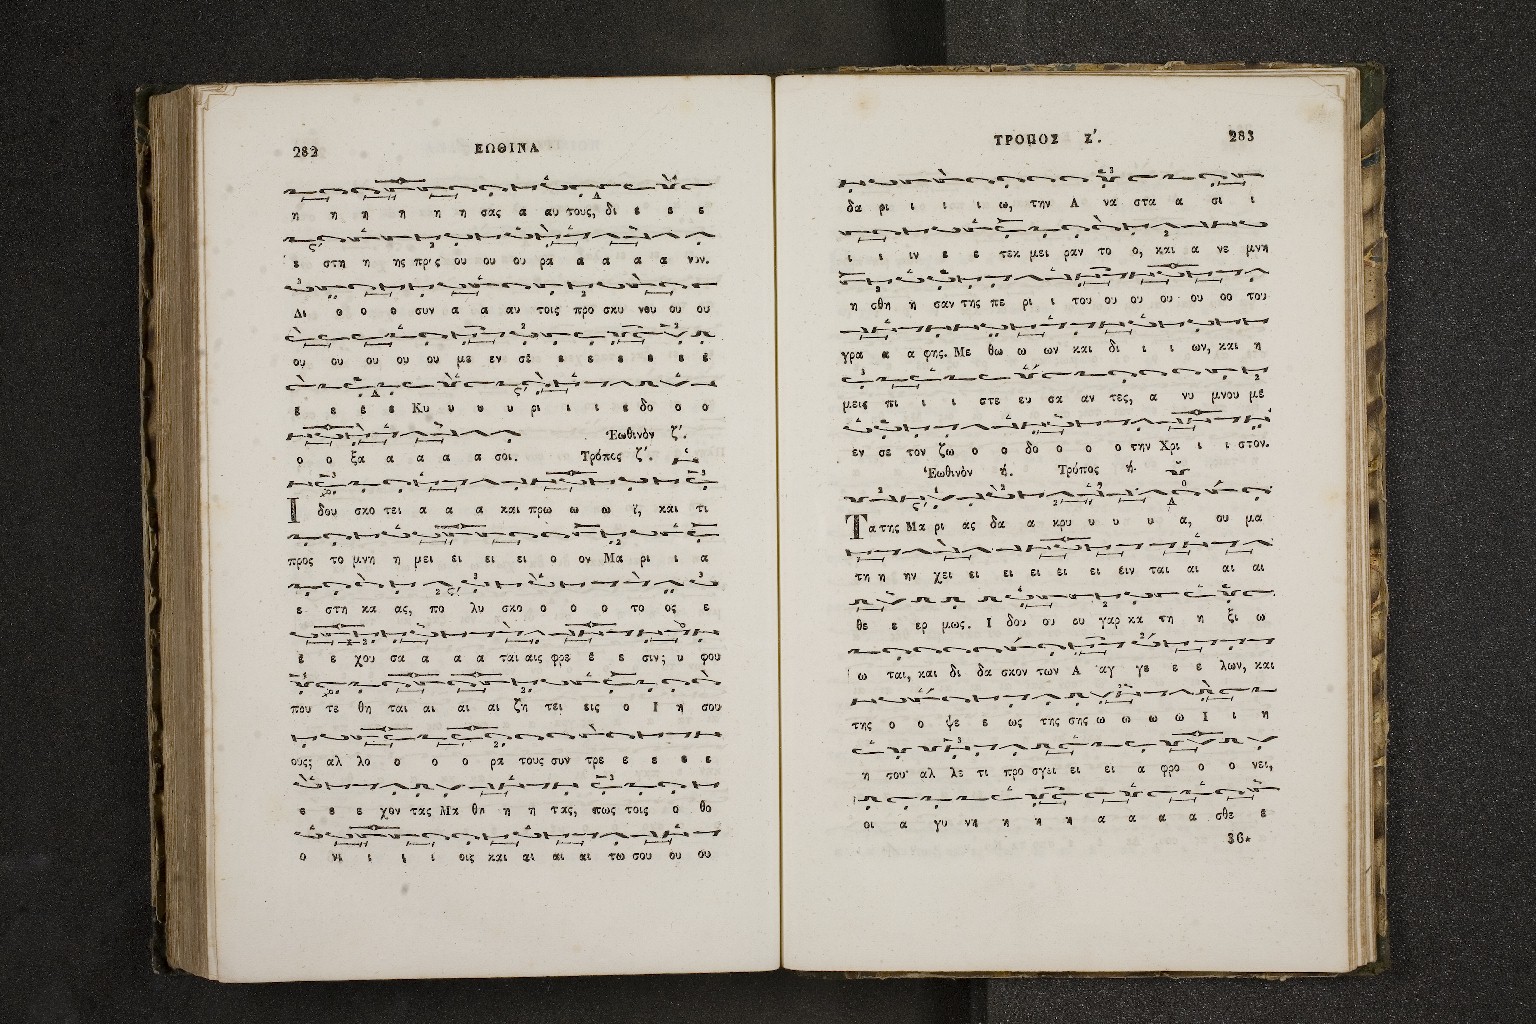 282
ΕΩΘΙΝΑ
η η η η η η σας α αυ τους, δι ε ε ε
ε στη η ης προς ου ου ου ρα α α α α νον.
Δι ο ο ο συν α α αυ τοις προ σκυ νου ου ου
ου ου ου ου ου με εν σε ε ε ε ε ε ε
ε ε ε ε Κυ υ υ υ ρι ι ι ε δο ο ο
ο ο ξα α α α α σοι.
Ἑωθινὸν ζ΄.
Τρόπος ζ΄.
Ιδου σκο τει α α α και πρω ω ω ϊ, και τι
προς το μνη η μει ει ει ει ο ον Μα ρι ι α
ε στη κα ας, πο λυ σκο ο ο ο το ος ε
ε ε χου σα α α α ται αις φρε ε ε σιν; υ φου
που τε θη ται αι αι αι ζη τει εις ο Ι η σου
ους; αλ λο ο ο ο ρα τους συν τρε ε ε ε ε
ε ε ε χον τας Μα θη η η τας, πως τοις ο θο
ο νι ι ι ι οις και αι αι αι τω σου ου ου
ΤΡΟΠΟΣ Ζ΄.
283
δα ρι ι ι ι ω, την Α να στα α σι ι
ι ι ιν ε ε τεκ μει ραν το ο, και α νε μνη
η σθη η σαν της πε ρι ι του ου ου ου ου ου του
γρα α α φης. Με θω ω ων και δι ι ι ων, και η
μεις πι ι ι στε ευ σα αν τες, α νυ μνου με
εν σε τον ζω ο ο δο ο ο ο την Χρι ι ι στον.
Ἑωθινὸν ή.
Τρόπος ή.
Τα της Μα ρι ας δα α κρυ υ υ υ α, ου μα
τη η ην χει ει ει ει ει ει ειν ται αι αι αι
θε ε ερ μως. Ι δου ου ου γαρ κα τη η ξι ω
ω ται, και δι δα σκον των Α αγ γε ε ε λων, και
της ο ο ψε ε ως της σης ω ω ω ω Ι ι η
η που αλ λε τι προ σγει ει ει α φρο ο ο νει,
οι α γυ νη η η η α α α α σθε ε
36*